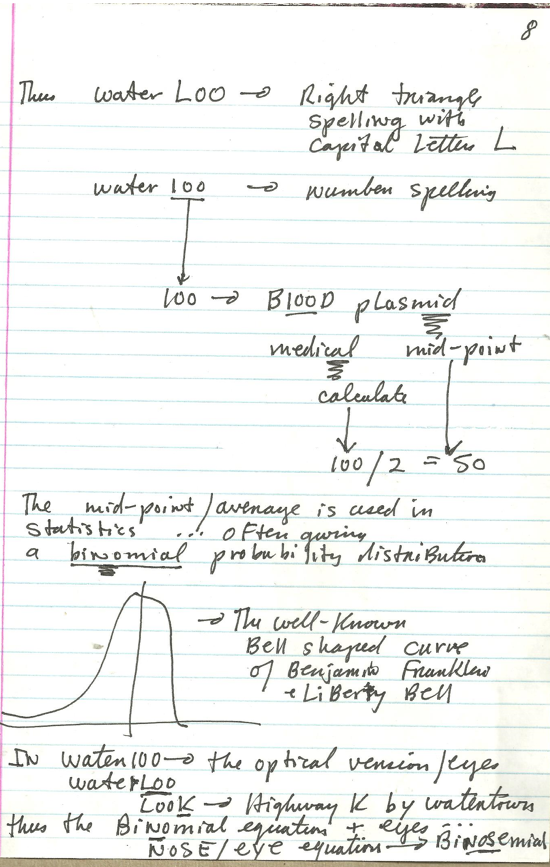 8
Thus water LOO → Right triangle
spelling with
capital letters L
water 100 → number spelling
100 → B100D plasmid
medical mid-point
calculate
100/2 = 50
The mid-point/average is used in
statistics ... often giving
a binomial probability distribution
→ The well-known
Bell shaped curve
of Benjamin Franklin
+ LiBerty Bell
IN water100 → the optical version/eyes
waterLoo
LooK → Highway K by watertown
thus the BiNomial equation + eyes ...
NOSE/eye equation → BiNOSEmial